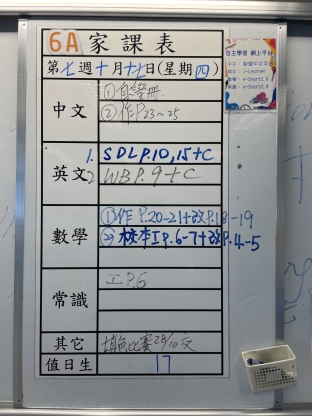 6A 家課表
第七週十月十七日(星期四)
中文
①自學冊
②作P.23~25
英文
1. SDL P.10,15+C
2 WB P.9+C
數學
①作P.20-21+改P.18-19
②校本工P.6-7+改P.4-5
常識
工P.6
其它
填色比賽28/10交
值日生
17
自主學習 網上平台